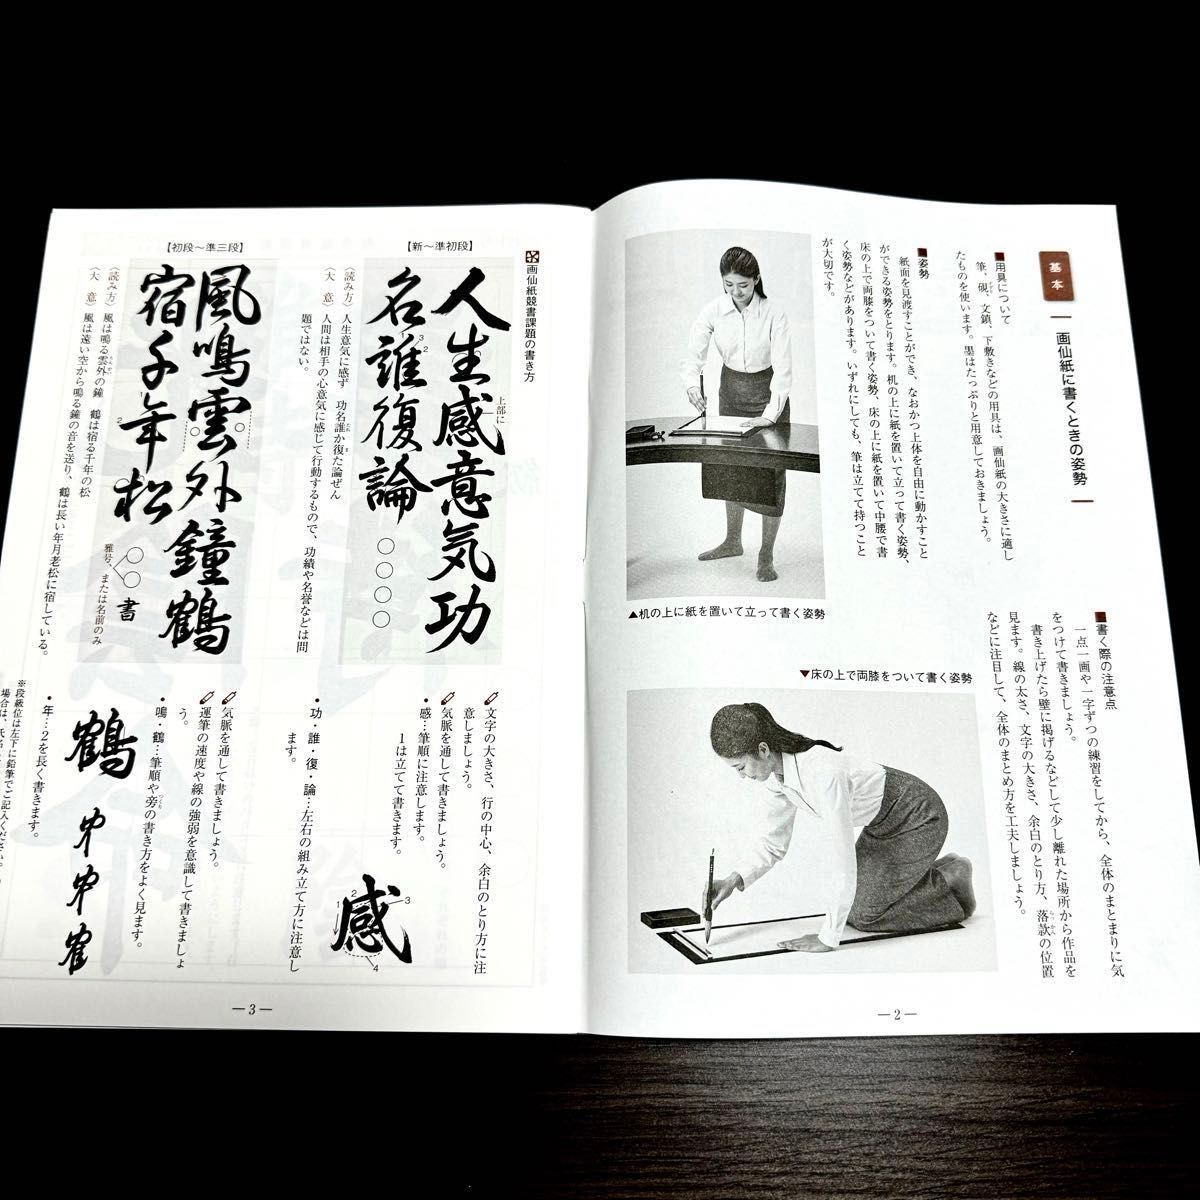 基本
画仙紙に書くときの姿勢
■用具について
筆、硯、文鎮、下敷きなどの用具は、画仙紙の大きさに適し
たものを使います。墨はたっぷりと用意しておきましょう。
■姿勢
紙面を見渡すことができ、なおかつ上体を自由に動かすこと
ができる姿勢をとります。机の上に紙を置いて立って書く姿勢、
床の上で両膝をついて書く姿勢、床の上に紙を置いて中腰で書
く姿勢などがあります。いずれにしても、筆は立てて持つこと
が大切です。
▲机の上に紙を置いて立って書く姿勢
■書く際の注意点
一点一画や一字ずつの練習をしてから、全体のまとまりに気
をつけて書きましょう。
書き上げたら壁に掲げるなどして少し離れた場所から作品を
見ます。線の太さ、文字の大きさ、余白のとり方、落款の位置
などに注目して、全体のまとめ方を工夫しましょう。
▼床の上で両膝をついて書く姿勢
—2—
画仙紙競書課題の書き方
【新〜準初段】
人生感意気功
名誰復論
○○○○
上部に
〈読み方〉人生意気に感ず 功名誰か復た論ぜん
〈大意〉人間は相手の心意気に感じて行動するもので、功績や名誉などは問
題ではない。
文字の大きさ、行の中心、余白のとり方に注
意しましょう。
気脈を通して書きましょう。
・感…筆順に注意します。
1は立てて書きます。
感
1
2
3
4
・功・誰・復・論…左右の組み立て方に注意し
ます。
【初段〜準三段】
風鳴雲外鐘鶴
宿千年松
○○書
雅号、または名前のみ
〈読み方〉風は鳴る雲外の鐘 鶴は宿る千年の松
〈大意〉風は遠い空から鳴る鐘の音を送り、鶴は長い年月老松に宿している。
気脈を通して書きましょう。
運筆の速度や線の強弱を意識して書きましょ
う。
・鳴・鶴…筆順や旁の書き方をよく見ます。
鶴
・年…2を長く書きます。
※段級位は左下に鉛筆でご記入ください。
—3—